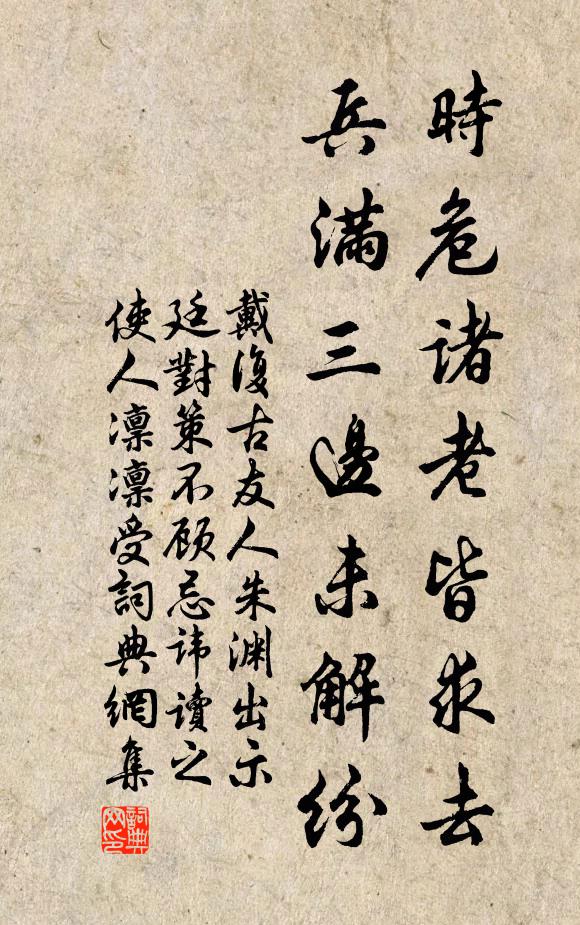 時危諸老皆求去
兵滿三邊未解紛
戴復古友人朱渊出示
廷對策不顾忌諱讀之
使人凛凛受詞典網集
詞典
网印